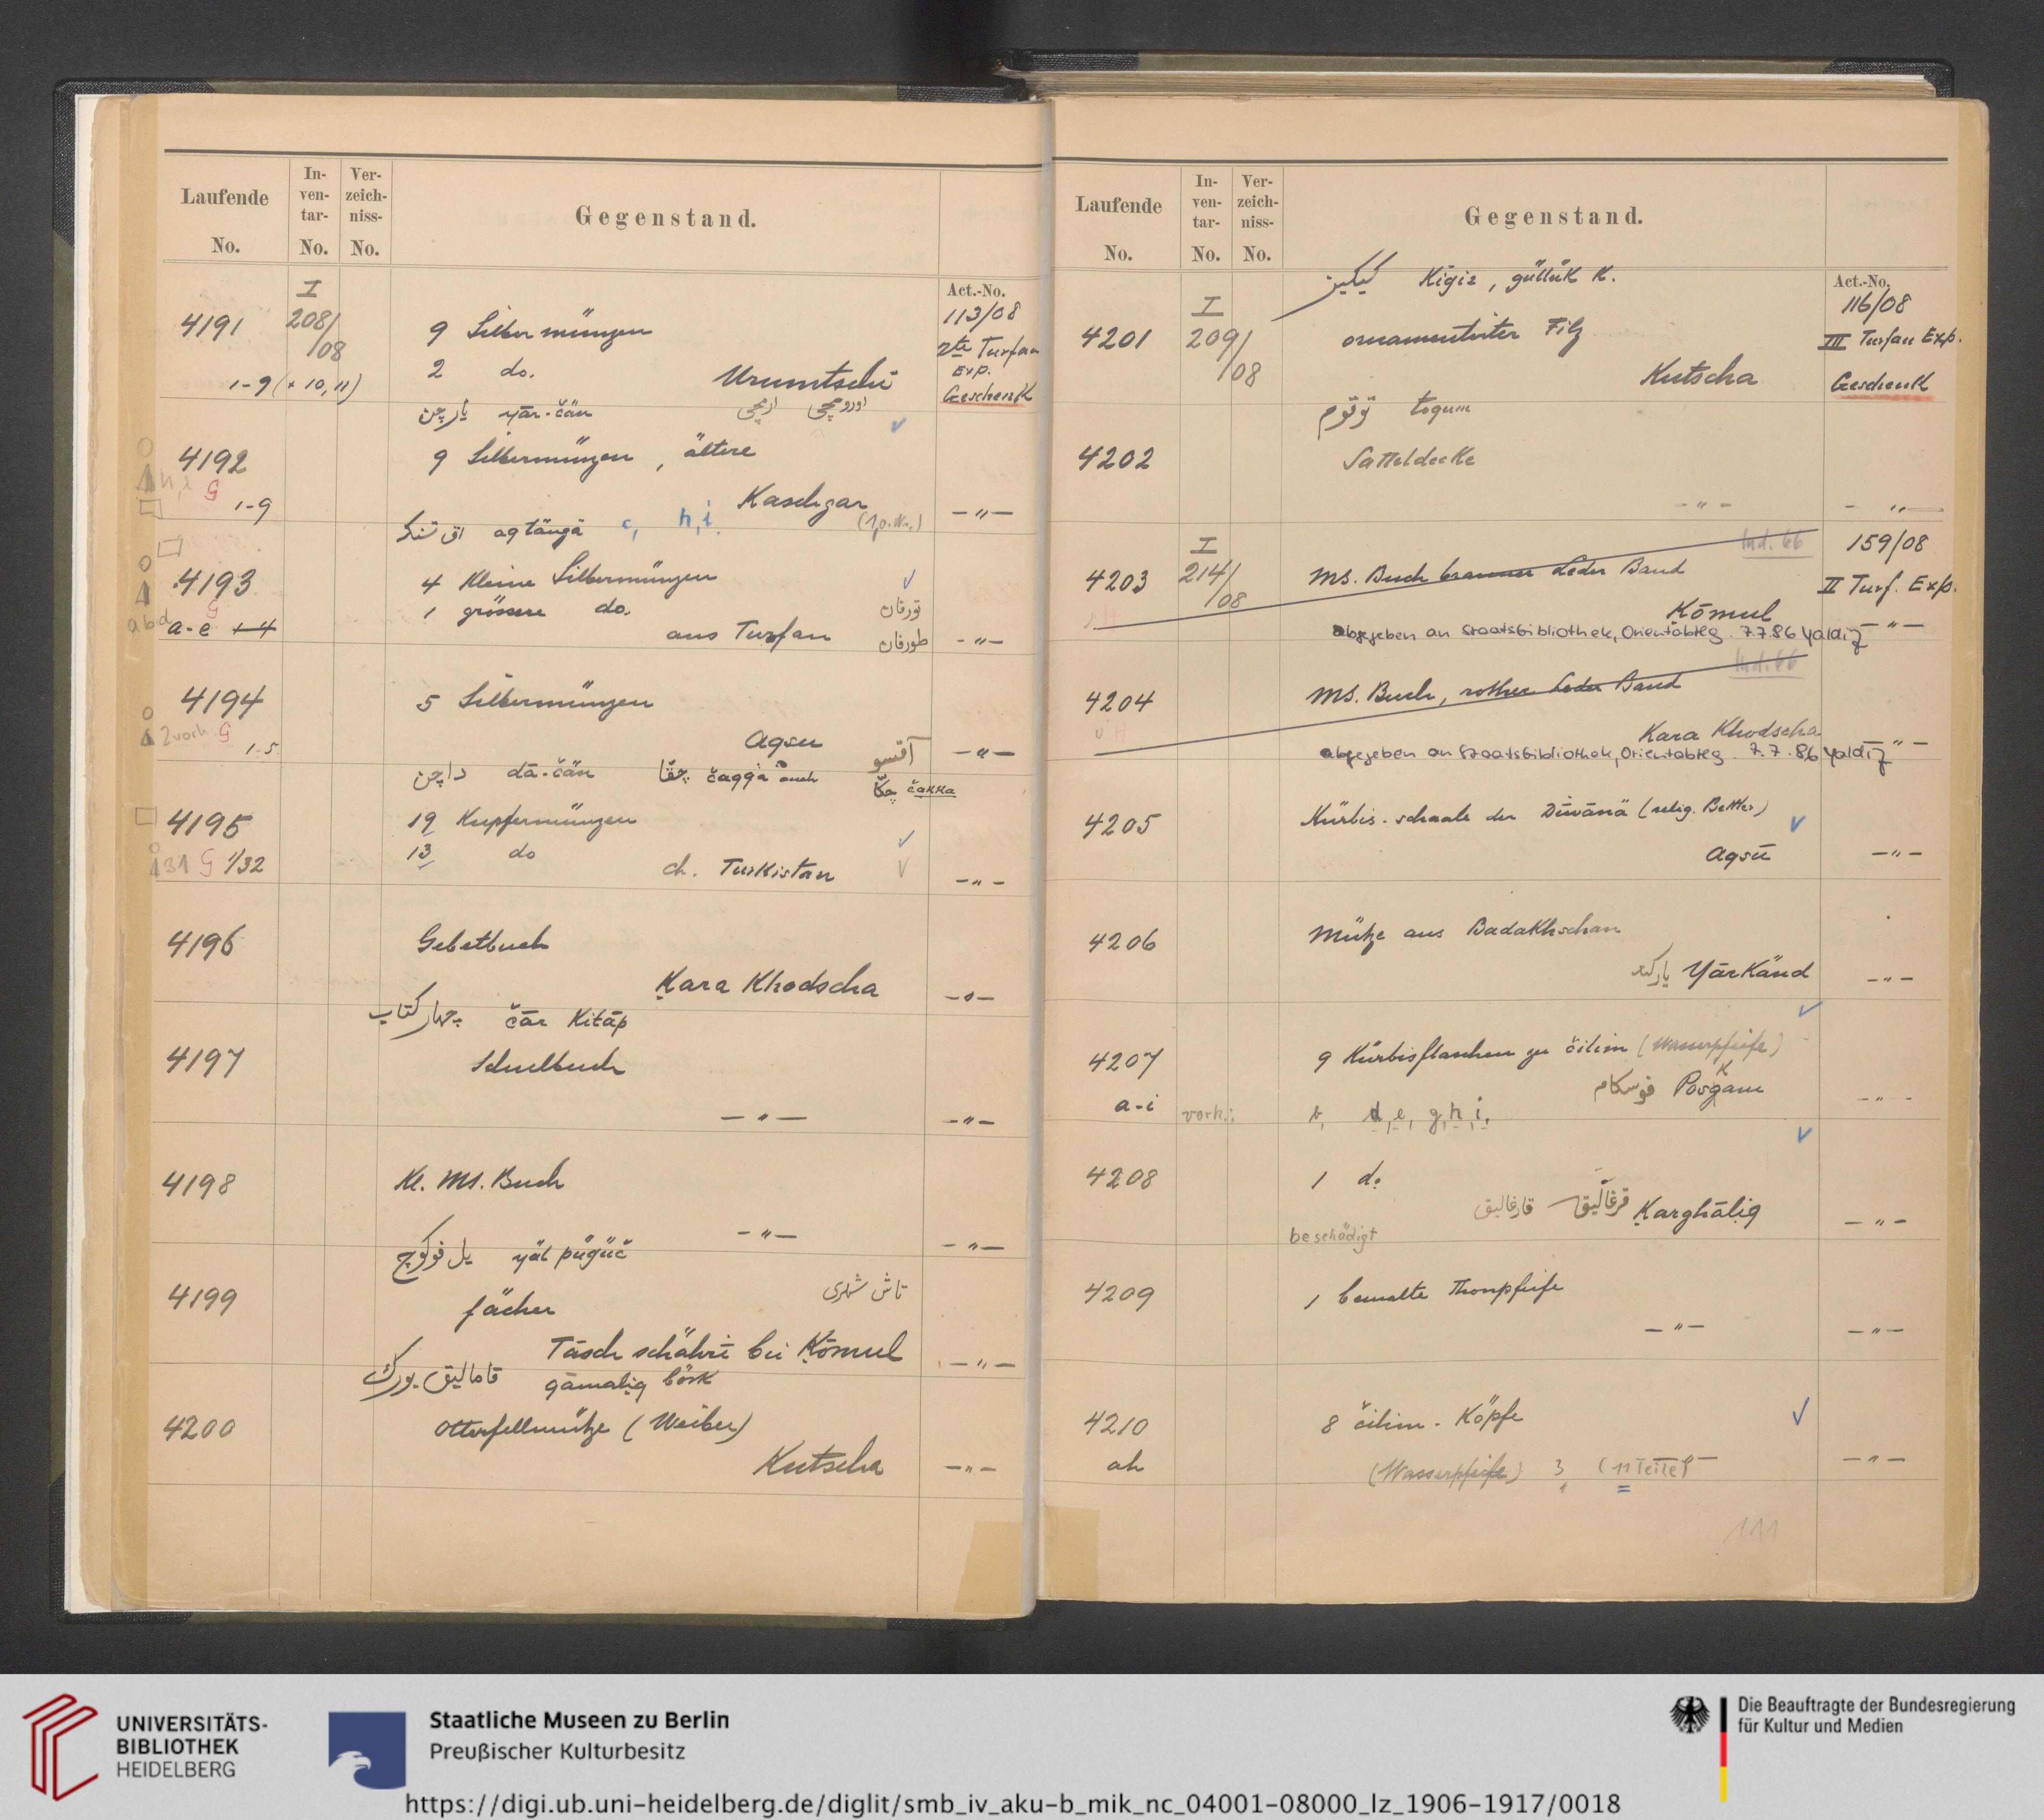 Laufende No.
In-ven-tar- No.
Ver-zeich-niss- No.
Gegenstand.
Act.-No.
4191 I 208/08 9 Silbermünzen 113/08
2te Turfan Exp.
1-9 (+ 10, 11) 2 do. Urumtschi Geschenk
يارچن yār-čän اورومچی ارمچی
4192 9 Silbermünzen, ältere
1-9 Kaschgar — " —
اق تنگه aq tängä c, h, i
4193 4 kleine Silbermünzen
1 grössere do. تورفان
a-e 1-4 aus Turfan طورفان — " —
4194 5 Silbermünzen
2 vorh. 1-5 Aqsu آقسو — " —
داچن dā-čän چقا čaqqa auch چکا čakka
4195 19 Kupfermünzen
31 1/32 13 do ch. Turkistan — " —
4196 Gebetbuch
Kara Khodscha — " —
چهار کتاب čār Kitāp
4197 Schulbuch
— " — — " —
4198 Kl. Ms. Buch
— " — — " —
يل فوکوچ yäl pügüč
4199 Fächer تاش شهری
Tāsch schährī bei Kōmul — " —
قاماليق بورك qāmaliq börk
4200 Otterfellmütze (Weiber)
Kutscha — " —
Laufende No.
In-ven-tar- No.
Ver-zeich-niss- No.
Gegenstand.
Act.-No.
کیکیز Kigiz, güllük K.
4201 I 209/08 ornamentirter Filz 116/08
III Turfan Exp.
Kutscha Geschenk
توقوم toqum
4202 Satteldecke
— " — — " —
Ind. 66
4203 I 214/08 Ms. Buch brauner Leder Band 159/08
II Turf. Exp.
Kōmul — " —
abgegeben an Staatsbibliothek, Orientabtlg. 7.7.86 Yaldiz
Ind. 66
4204 Ms. Buch, rother Leder Band
Kara Khodscha — " —
abgegeben an Staatsbibliothek, Orientabtlg. 7.7.86 Yaldiz
4205 Kürbis-schaale der Dīwānä (relig. Bettler)
Aqsū — " —
4206 Mütze aus Badakhschan
يارکند Yārkänd — " —
4207 9 Kürbisflaschen zu čilim (Wasserpfeife)
فوسکام Posgam
a-i vorh.: b, d, e, g, h, i. — " —
4208 1 do
قارغاليق قرغاليق Karghāliq — " —
beschädigt
4209 1 bemalte Thonpfeife
— " — — " —
4210 8 čilim-Köpfe
ah (Wasserpfeife) 3 (11 Teile) — " —
111
UNIVERSITÄTS-
BIBLIOTHEK
HEIDELBERG
Staatliche Museen zu Berlin
Preußischer Kulturbesitz
Die Beauftragte der Bundesregierung
für Kultur und Medien
https://digi.ub.uni-heidelberg.de/diglit/smb_iv_aku-b_mik_nc_04001-08000_lz_1906-1917/0018